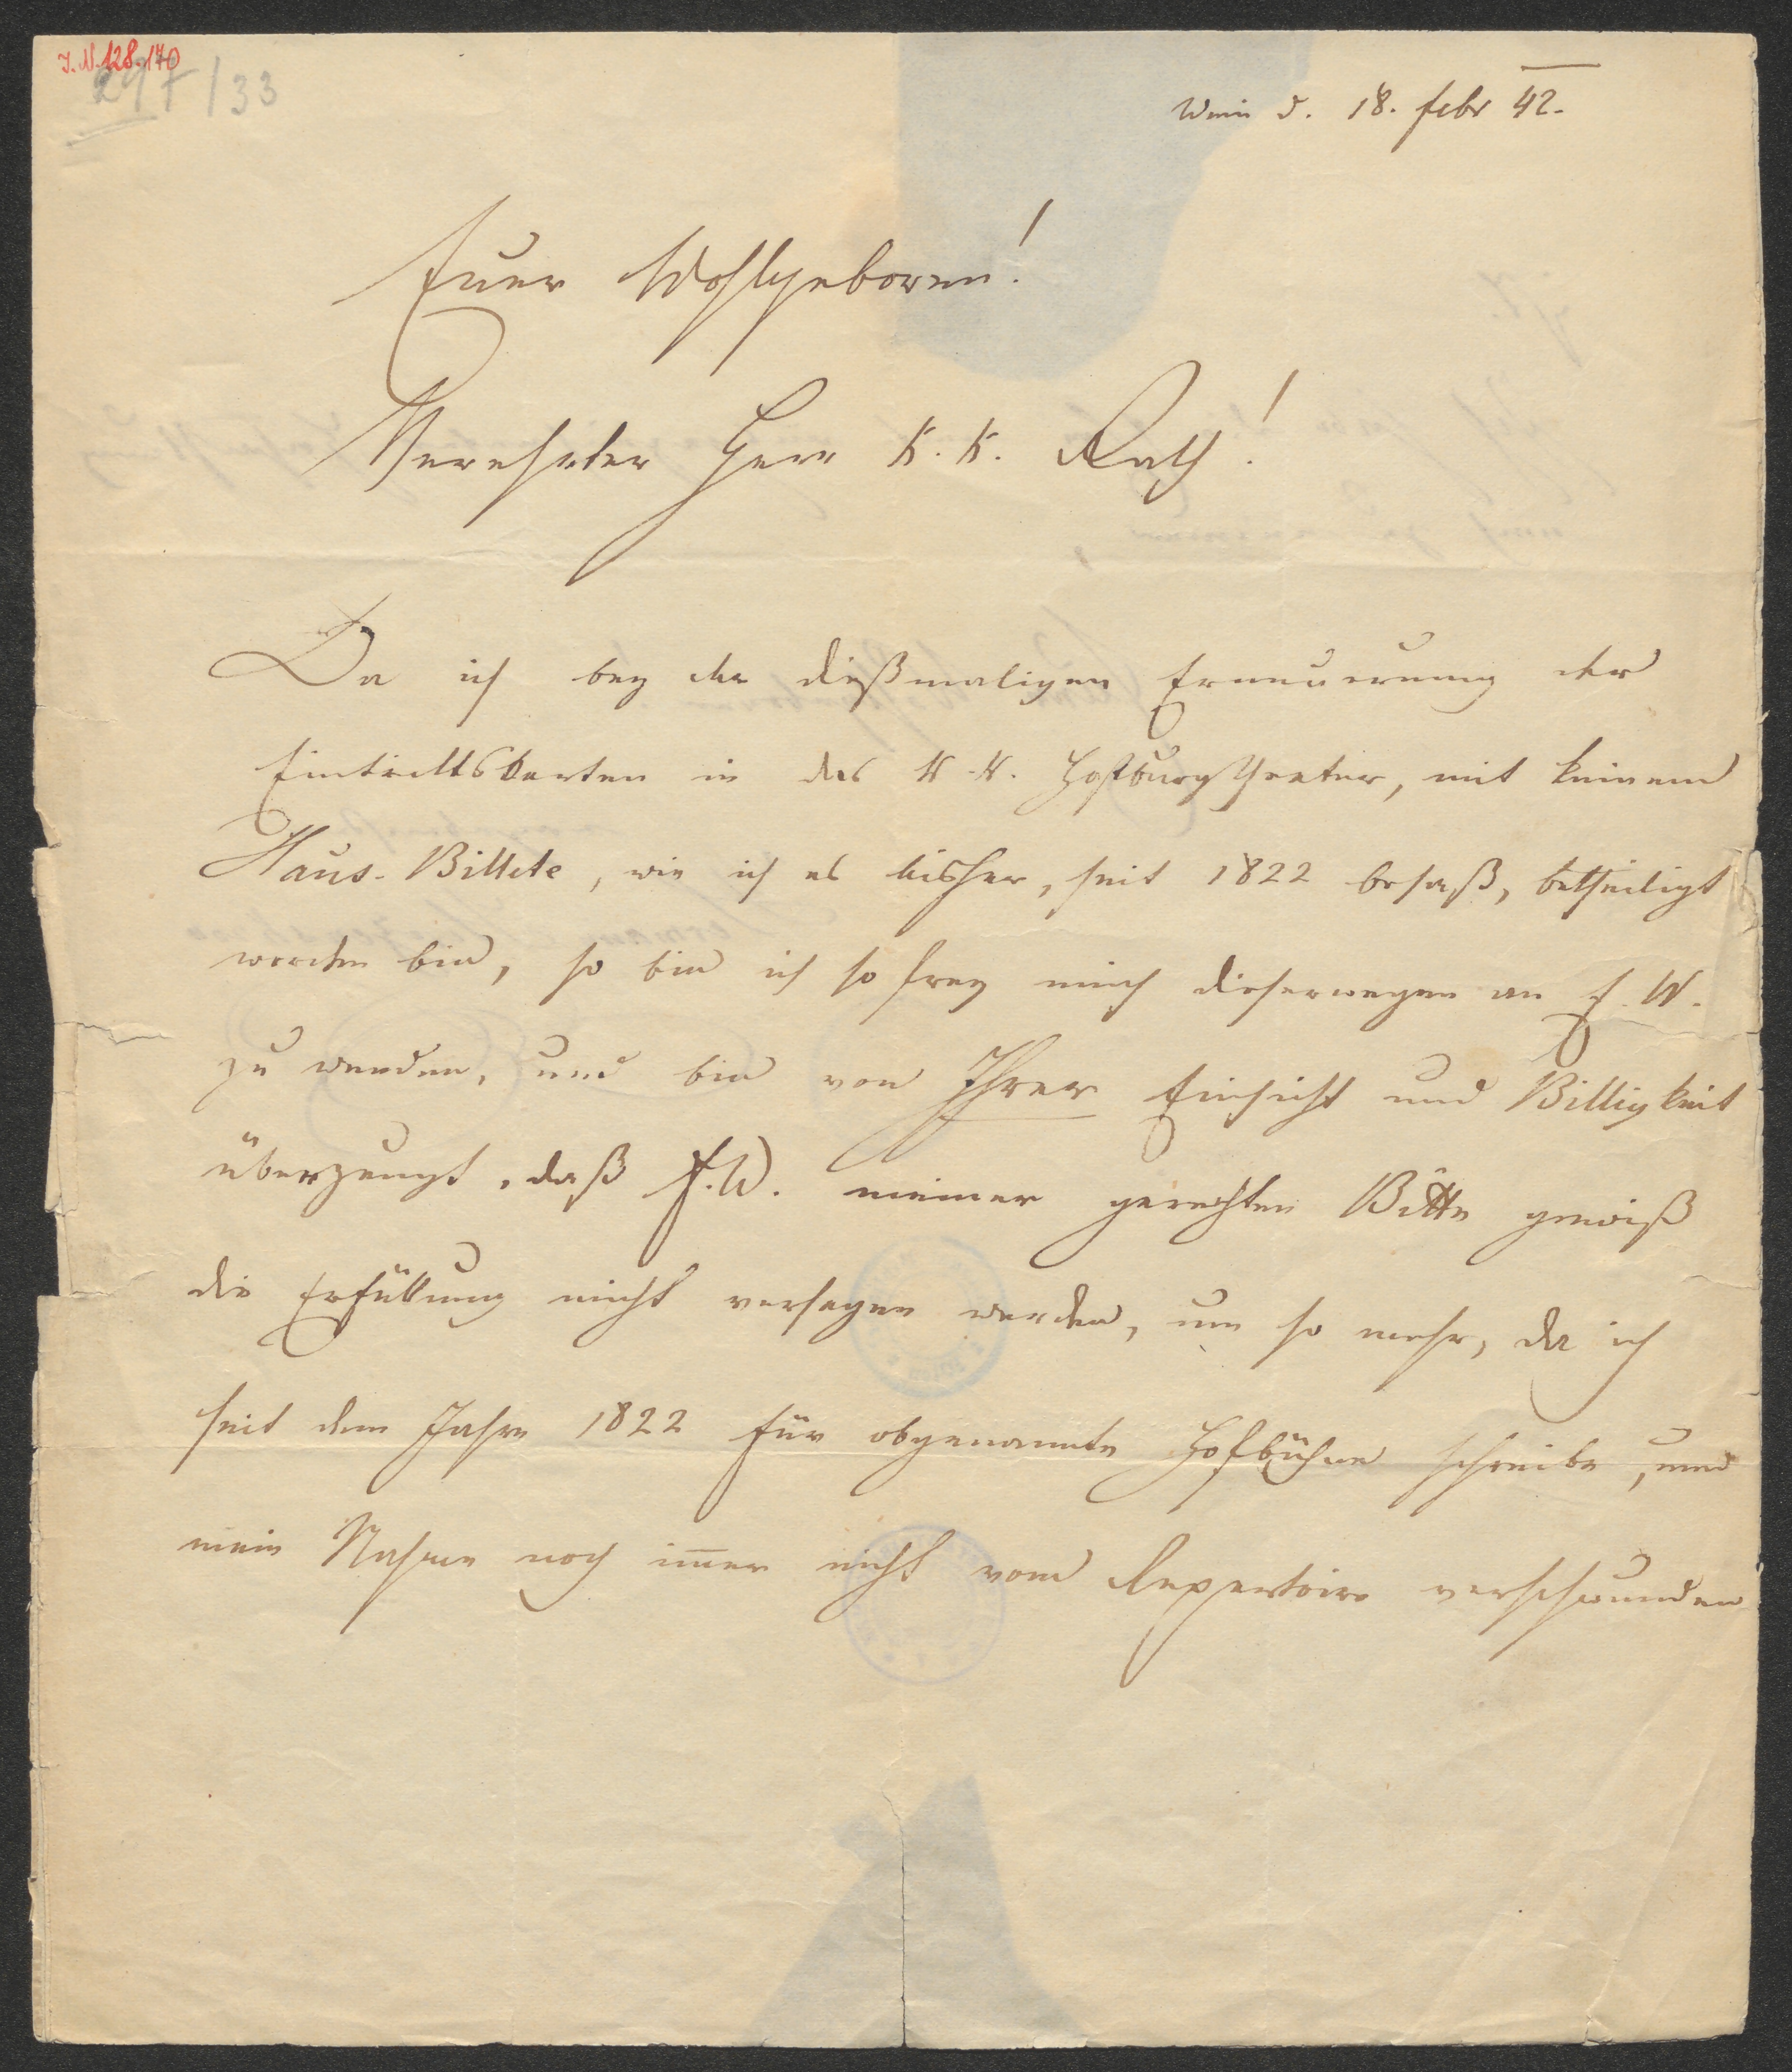 J. N. 128.170
297/33
Wien d. 18. febr 42.
Euer Wohlgeboren!
Verehrter Herr K. K. Rath!
Da ich bey der dießmaligen Erneuerung der
Eintrittskarten in das K. K. Hofburgtheater, mit keinem
Haus-Billete, wie ich es bisher, seit 1822 besaß, betheiligt
worden bin, so bin ich so frey mich dieserwegen an E. W.
zu wenden, und bin von Ihrer Einsicht und Billigkeit
überzeugt, daß E. W. meiner gerechten Bitte gewiß
die Erfüllung nicht versagen werden, um so mehr, da ich
seit dem Jahre 1822 für obgenannte Hofbühne schreibe, und
mein Nahme noch im̅er nicht vom Repertoire verschwunden